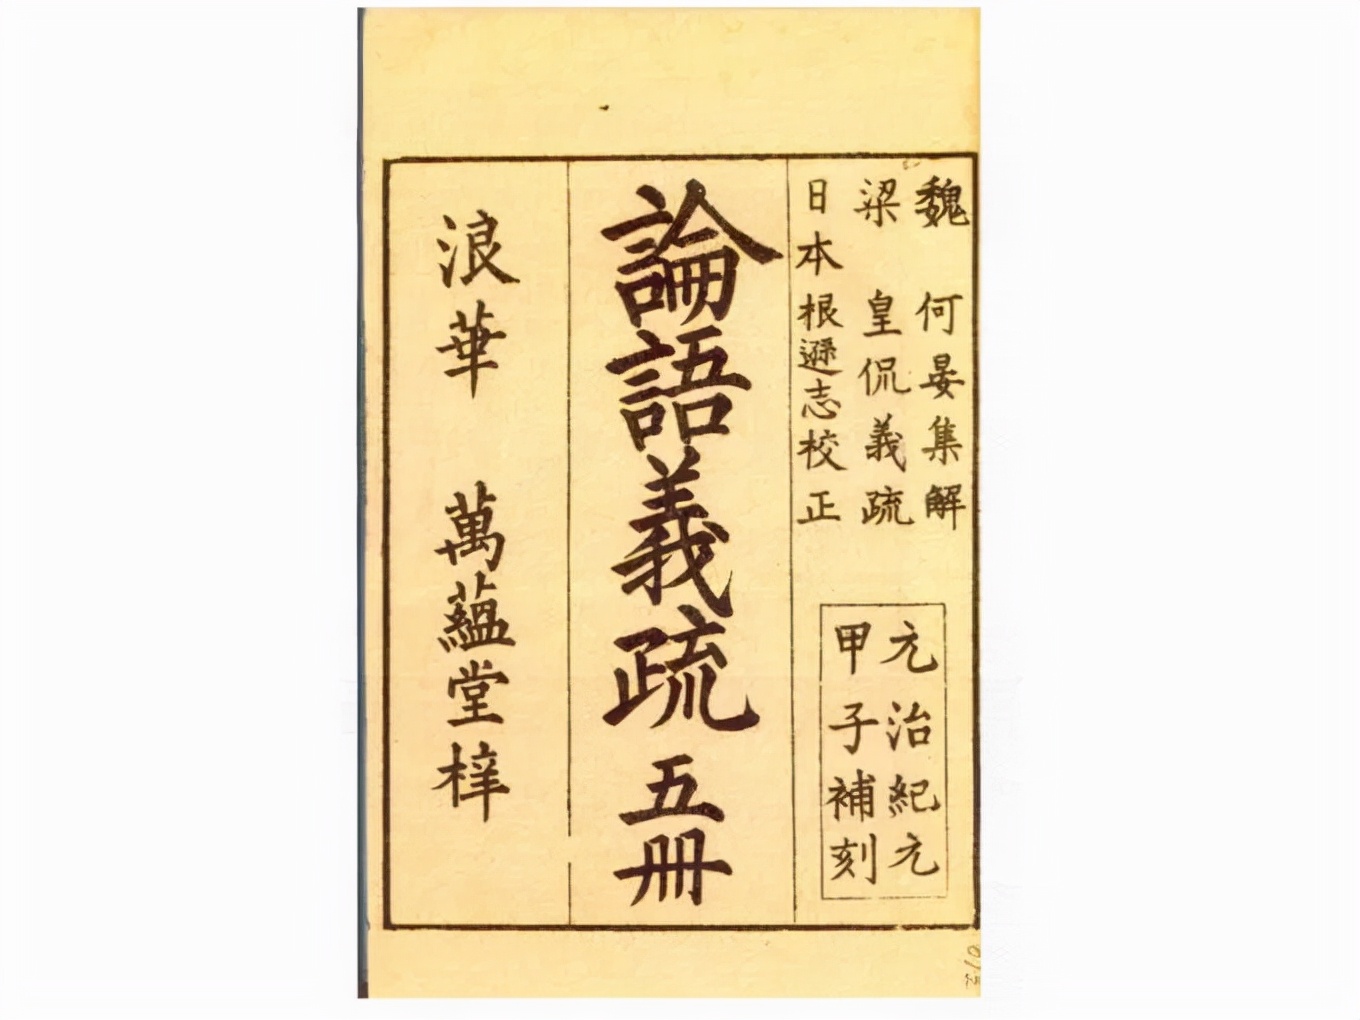 魏 何晏集解
梁 皇侃義疏
日本根遜志校正
元治紀元
甲子補刻
論語義疏 五冊
浪華 萬蘊堂梓